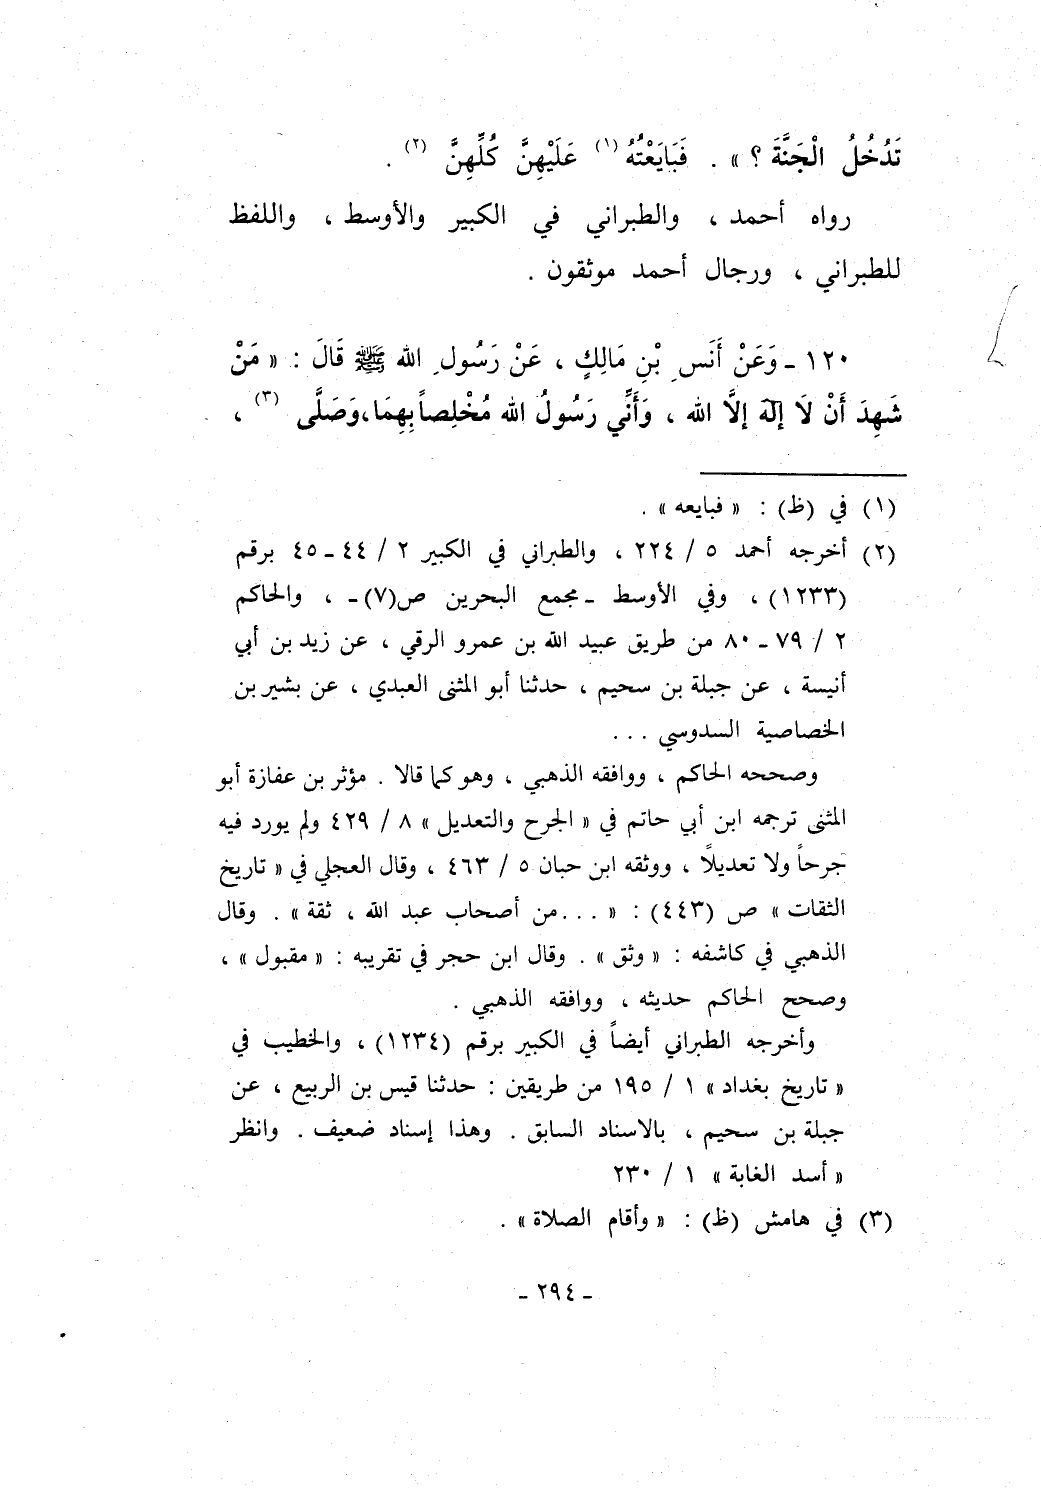 تَدْخُلُ الْجَنَّةَ ؟ » . فَبَايَعْتُهُ (١) عَلَيْهِنَّ كُلِّهِنَّ (٢) .
رواه أحمد ، والطبراني في الكبير والأوسط ، واللفظ
للطبراني ، ورجال أحمد موثقون .
١٢٠ ـ وَعَنْ أَنَسِ بْنِ مَالِكٍ ، عَنْ رَسُولِ اللهِ ﷺ قَالَ : « مَنْ
شَهِدَ أَنْ لَا إِلَهَ إِلَّا اللهُ ، وَأَنِّي رَسُولُ اللهِ مُخْلِصاً بِهِمَا، وَصَلَّى (٣) ،
(١) في (ظ) : « فبايعه » .
(٢) أخرجه أحمد ٥ / ٢٢٤ ، والطبراني في الكبير ٢ / ٤٤ ـ ٤٥ برقم
(١٢٣٣) ، وفي الأوسط ـ مجمع البحرين ص(٧) ـ ، والحاكم
٢ / ٧٩ ـ ٨٠ من طريق عبيد الله بن عمرو الرقي ، عن زيد بن أبي
أنيسة ، عن جبلة بن سحيم ، حدثنا أبو المثنى العبدي ، عن بشير بن
الخصاصية السدوسي . . .
وصححه الحاكم ، ووافقه الذهبي ، وهو كما قالا . مؤثر بن عفازة أبو
المثنى ترجمه ابن أبي حاتم في « الجرح والتعديل » ٨ / ٤٢٩ ولم يورد فيه
جرحاً ولا تعديلاً ، ووثقه ابن حبان ٥ / ٤٦٣ ، وقال العجلي في « تاريخ
الثقات » ص (٤٤٣) : « . . . من أصحاب عبد الله ، ثقة » . وقال
الذهبي في كاشفه : « وثق » . وقال ابن حجر في تقريبه : « مقبول » ،
وصحح الحاكم حديثه ، ووافقه الذهبي .
وأخرجه الطبراني أيضاً في الكبير برقم (١٢٣٤) ، والخطيب في
« تاريخ بغداد » ١ / ١٩٥ من طريقين : حدثنا قيس بن الربيع ، عن
جبلة بن سحيم ، بالاسناد السابق . وهذا إسناد ضعيف . وانظر
« أسد الغابة » ١ / ٢٣٠
(٣) في هامش (ظ) : « وأقام الصلاة » .
ـ ٢٩٤ ـ